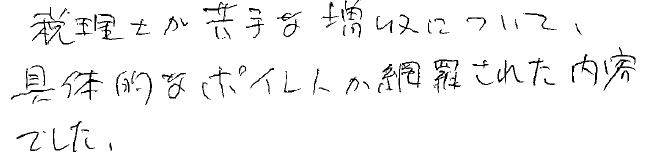 税理士が苦手な増収について、
具体的なポイントが網羅された内容
でした。